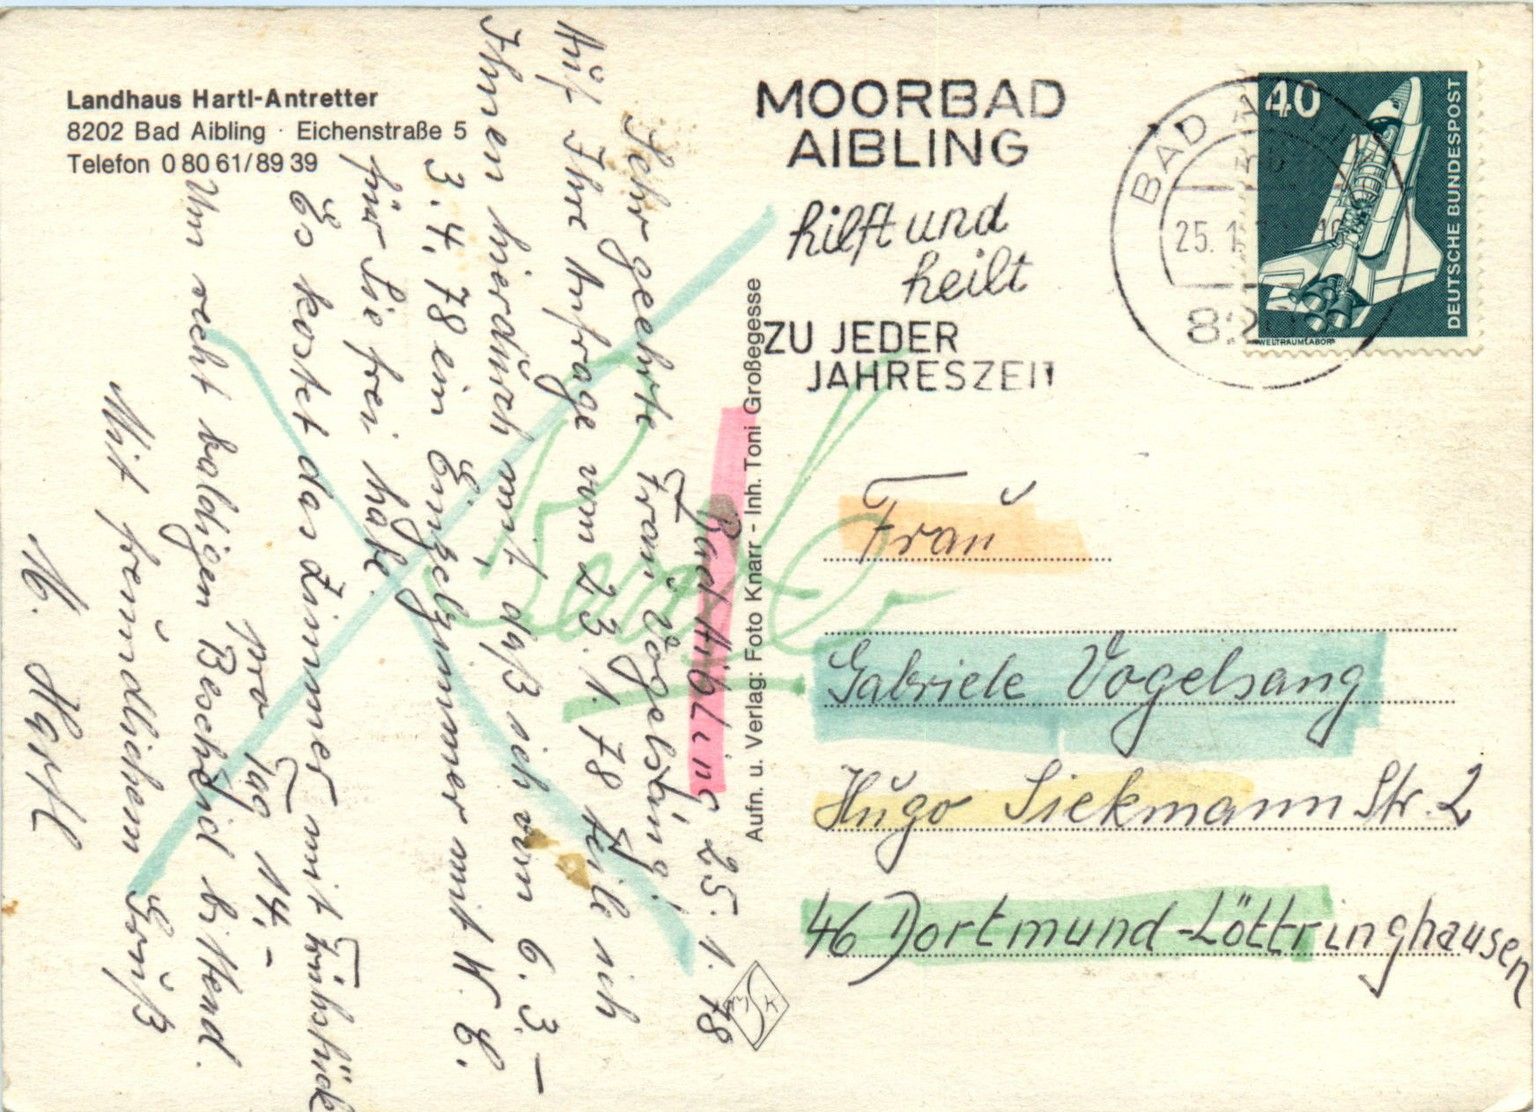 Landhaus Hartl-Antretter
8202 Bad Aibling · Eichenstraße 5
Telefon 0 80 61/89 39
Bad Aibling 25. 1. 78
Sehr geehrte Frau Vogelsang!
Auf Ihre Anfrage vom 23. 1. 78 teile ich
Ihnen hierdurch mit, daß ich vom 6. 3. –
3. 4. 78 ein Einzelzimmer mit W. C.
für Sie frei habe.
Es kostet das Zimmer mit Frühstück
pro Tag 14,-
Um recht baldigen Bescheid bittend.
Mit freundlichem Gruß
M. Hartl
Aufn. u. Verlag: Foto Knarr - Inh. Toni Großegesse
MOORBAD
AIBLING
hilft und
heilt
ZU JEDER
JAHRESZEIT
BAD
25. 1.
820
40
DEUTSCHE BUNDESPOST
WELTRAUMLABOR
Frau
Gabriele Vogelsang
Hugo Siekmann Str. 2
46 Dortmund-Löttringhausen